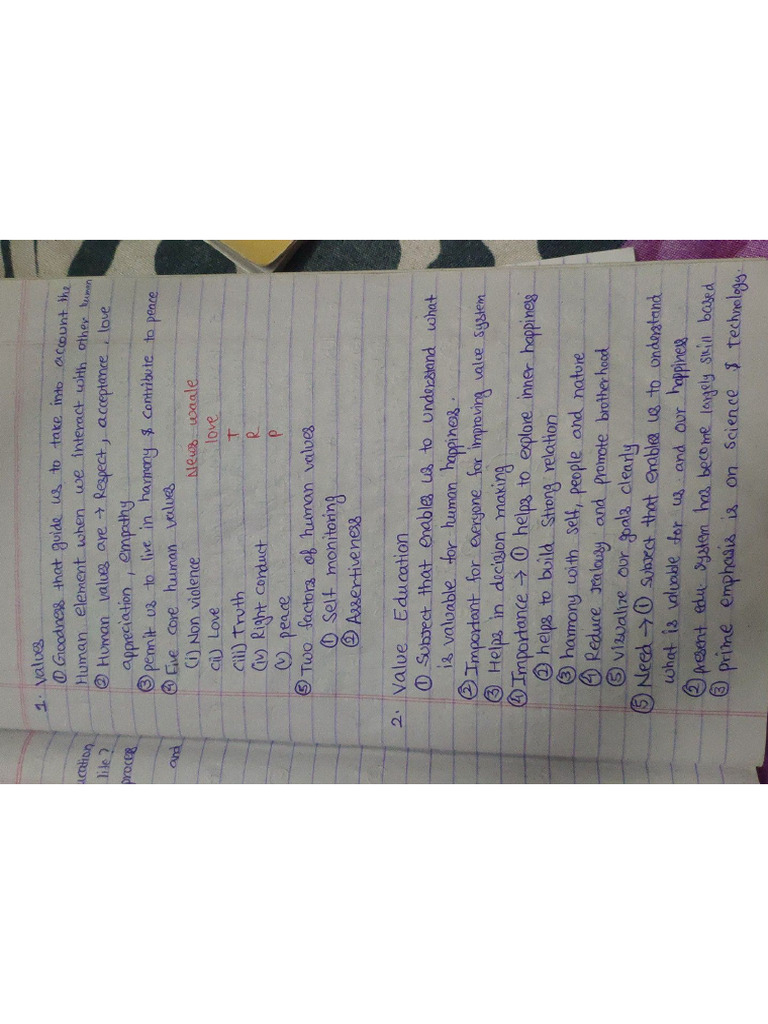 ucation
like?
process
and
1. Values
① Goodness that guide us to take into account the
Human element when we interact with other human
② Human values are → Respect, acceptance, love
appreciation, empathy
③ permit us to live in harmony & contribute to peace
④ Five core human values
(i) Non violence News waale
(ii) Love love
(iii) Truth T
(iv) Right conduct R
(v) peace P
⑤ Two factors of human values
① Self monitoring
② Assertiveness
2. Value Education
① Subject that enables us to understand what
is valuable for human happiness.
② Important for everyone for improving value system
③ Helps in decision making
④ Importance → ① helps to explore inner happiness
② helps to build strong relation
③ harmony with self, people and nature
④ Reduce jealousy and promote brotherhood
⑤ visualize our goals clearly
⑤ Need → ① subject that enables us to understand
what is valuable for us and our happiness
② present edu. system has become largely skill based
③ prime emphasis is on science & technology.